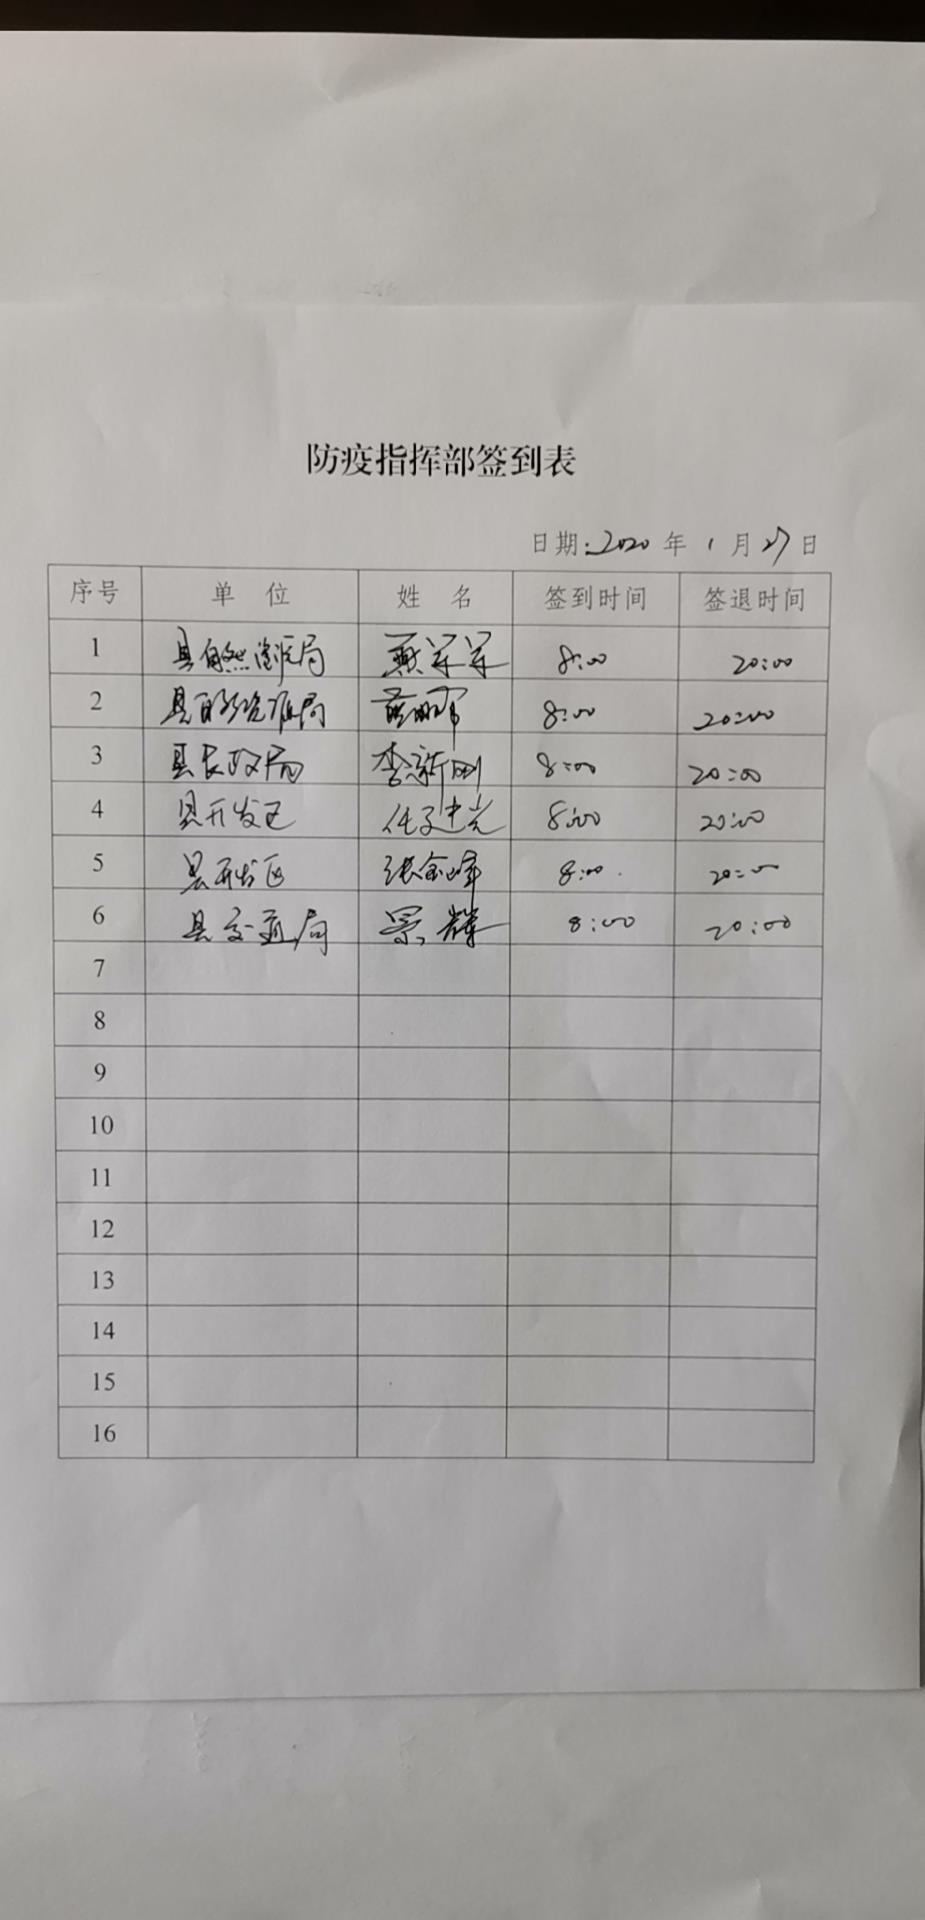 防疫指挥部签到表
日期:2020年1月27日
序号 单位 姓名 签到时间 签退时间
1 县自然资源局 军军 8:00 20:00
2 县自然资源局 8:00 20:00
3 县长政局 李新刚 8:00 20:00
4 县开发区 任建光 8:00 20:00
5 县开发区 张金峰 8:00. 20:00
6 县交通局 景辉 8:00 20:00
7
8
9
10
11
12
13
14
15
16